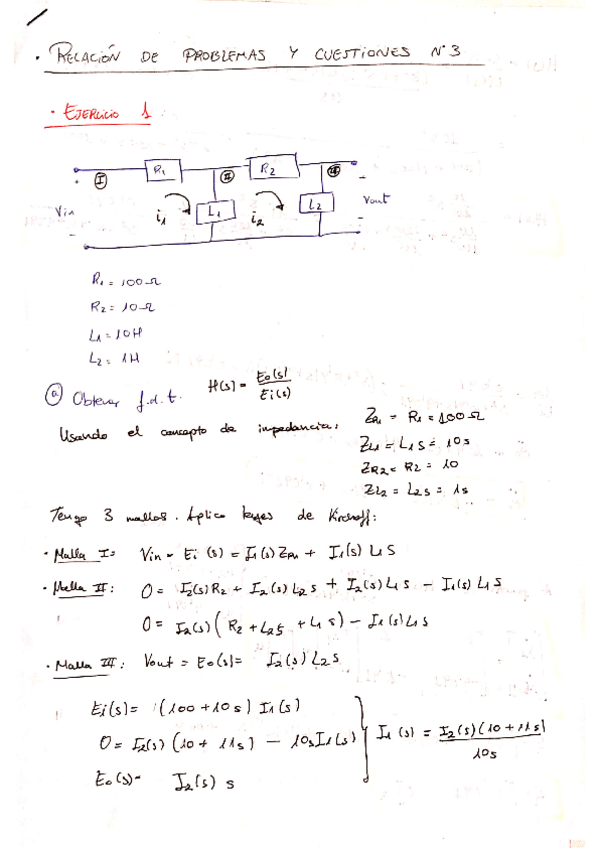 · RELACIÓN DE PROBLEMAS Y CUESTIONES Nº 3
· EJERCICIO 1
R1 II R2 III
I
Vin i1 L1 i2 L2 Vout
+ -
- -
R1 = 100 Ω
R2 = 10 Ω
L1 = 10 H
L2 = 1H
a) Obtener f.d.t. H(s) = Eo(s) / Ei(s)
Usando el concepto de impedancia: ZR1 = R1 = 100 Ω
ZL1 = L1 s = 10s
ZR2 = R2 = 10
ZL2 = L2s = 1s
Tengo 3 mallas. Aplico leyes de Kirchoff:
· Malla I: Vin = Ei (s) = I1(s) ZR1 + I1(s) L1 S
· Malla II: 0 = I2(s) R2 + I2(s) L2 s + I2(s) L1 s - I1(s) L1 s
0 = I2(s) ( R2 + L2s + L1 s) - I1(s) L1 s
· Malla III: Vout = Eo(s) = I2(s) L2 s
Ei(s) = (100 + 10 s) I1(s)
0 = I2(s) (10 + 11s) - 10s I1(s) I1 (s) = I2(s) (10 + 11s) / 10s
Eo (s) = I2(s) s